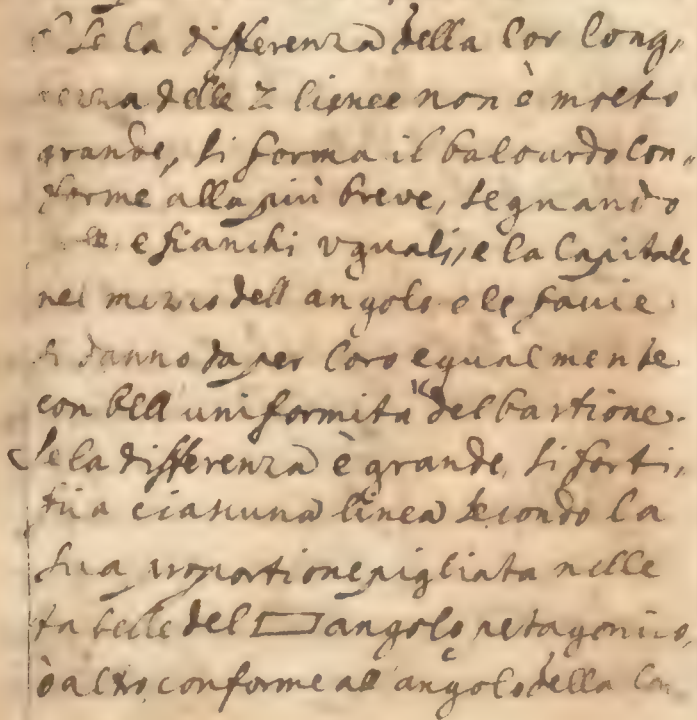 Se la differenza della lor long,,
delle 2 lienee non è molto
grande, si forma il balouardo con,,
forme alla più breve, segnando
e fianchi uguali, e la Capitale
nel mezzo dell angolo e le facie
si danno da per loro egualmente
con bell uniformita del bastione.
Se la differenza è grande, si forti,,
fii a ciascuna linea secondo la
sua proportione pigliata nelle
tabelle del angolo
ò altro, conforme all angolo della